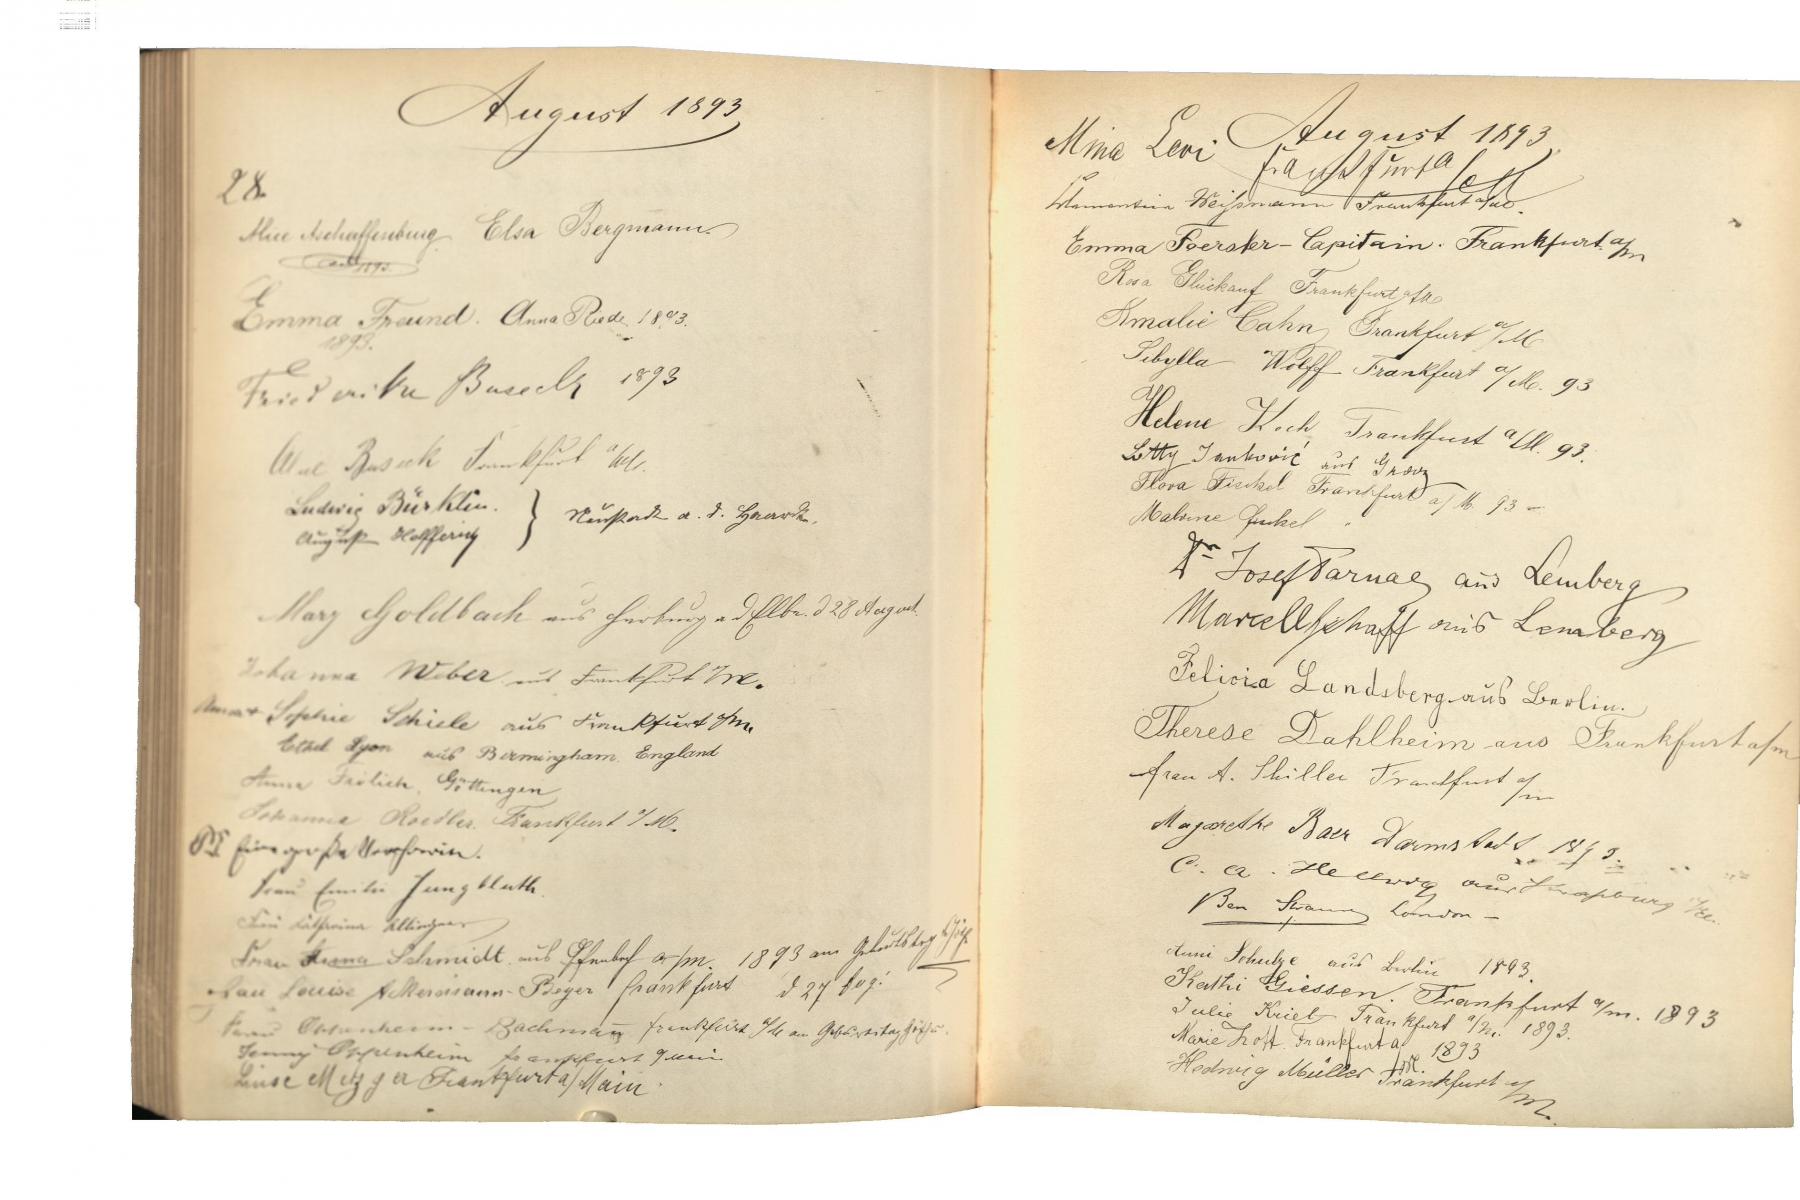 August 1893
28.
Alice Aschaffenburg Elsa Bergmann.
1893.
Emma Freund. Anna Rede 1893.
1893.
Friederike Buseck 1893
Buseck Frankfurt a/M.
Ludwig Bürklin.
August } Neustadt a. d. Haardt.
Mary Goldbach aus Harburg a d Elbe. d 28 August.
Johanna Weber aus Frankfurt a/M.
Sophie Schiele aus Frankfurt a/m
Ethel Lyon aus Birmingham. England
Anna Frölich, Göttingen
Johanna Roedler. Frankfurt a/M.
Eine große Verehrerin.
Frau Emilie Jungbluth.
Frau Katharina
Frau Anna Schmidt aus Offenbach a/m. 1893 am Geburtstag
Frau Louise Ackermann-Beyer Frankfurt d 27 Aug.
Frau Oppenheim - Bachmann Frankfurt a/M am Geburtstag
Jenny Oppenheim Frankfurt Main
Luise Metzger Frankfurt a/Main.
August 1893
Mina Levi Frankfurt a/M
Clementine Weismann Frankfurt a/M.
Emma Foerster-Capitain. Frankfurt a/m
Rosa Glückauf Frankfurt a/M
Amalie Cahn Frankfurt a/M
Sibylla Wolff Frankfurt a/M. 93
Helene Koch Frankfurt a/M. 93.
Letty Janković aus Graz
Flora Frankfurt a/M. 93 –
Malvine
Dr Josef aus Lemberg
Marcell Schaff aus Lemberg
Felicia Landsberg aus Berlin.
Therese Dahlheim aus Frankfurt a/m
Frau A. Schiller Frankfurt a/m
Margarethe Baer Darmstadt 1893.
C. A. Hellwig aus Straßburg i/E.
Ben Strauss London –
Anni Schulze aus Berlin 1893.
Kathi Giessen. Frankfurt a/m. 1893
Julie Frankfurt a/M. 1893.
Marie Frankfurt a/M. 1893
Hedwig Müller Frankfurt a/M.